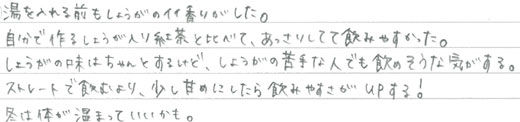 湯を入れる前もしょうがのイイ香りがした。
自分で作るしょうが入り紅茶と比べて、あっさりしてて飲みやすかった。
しょうがの味はちゃんとするけど、しょうがの苦手な人でも飲めそうな気がする。
ストレートで飲むより、少し甘めにしたら飲みやすさがUPする!
冬は体が温まっていいかも。